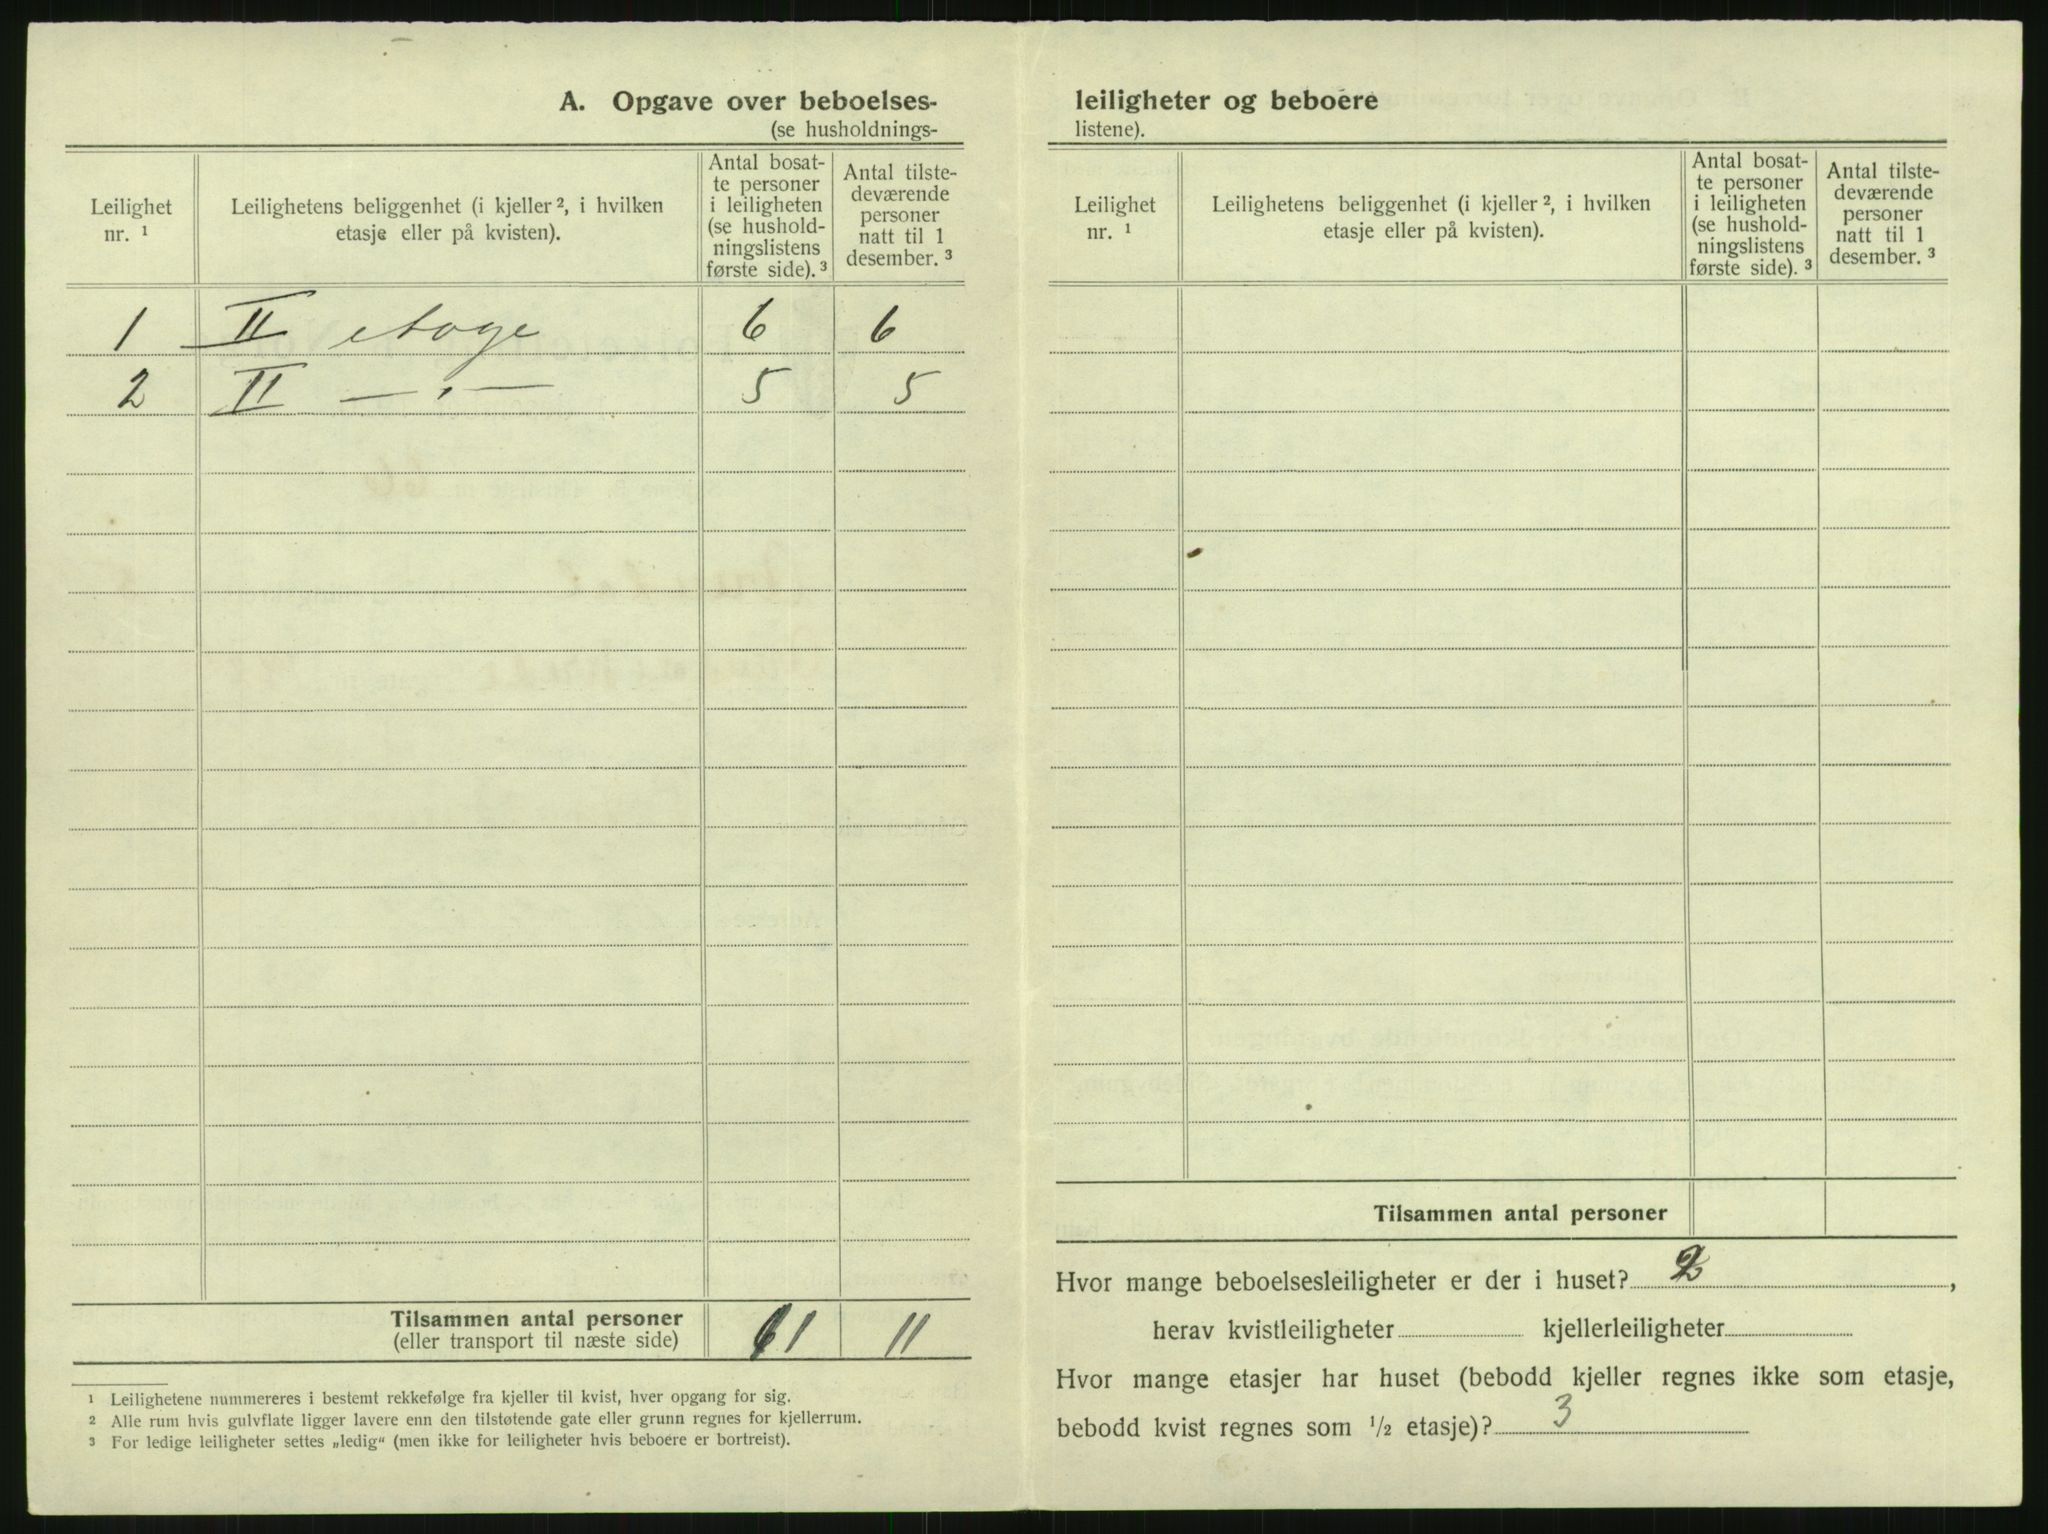 A. Opgave over beboelses-
(se husholdnings-
Leilighet nr. ¹
Leilighetens beliggenhet (i kjeller ², i hvilken etasje eller på kvisten).
Antal bosat-
te personer
i leiligheten
(se hushold-
ningslistens
første side). ³
Antal tilste-
deværende
personer
natt til 1
desember. ³
1 II etage 6 6
2 II — „ — 5 5
Tilsammen antal personer
(eller transport til næste side)
11 11
¹ Leilighetene nummereres i bestemt rekkefølge fra kjeller til kvist, hver opgang for sig.
² Alle rum hvis gulvflate ligger lavere enn den tilstøtende gate eller grunn regnes for kjellerrum.
³ For ledige leiligheter settes „ledig“ (men ikke for leiligheter hvis beboere er bortreist).
leiligheter og beboere
listene).
Leilighet nr. ¹
Leilighetens beliggenhet (i kjeller ², i hvilken etasje eller på kvisten).
Antal bosat-
te personer
i leiligheten
(se hushold-
ningslistens
første side). ³
Antal tilste-
deværende
personer
natt til 1
desember. ³
Tilsammen antal personer
Hvor mange beboelsesleiligheter er der i huset? 2,
herav kvistleiligheter kjellerleiligheter
Hvor mange etasjer har huset (bebodd kjeller regnes ikke som etasje,
bebodd kvist regnes som ¹/₂ etasje)? 3